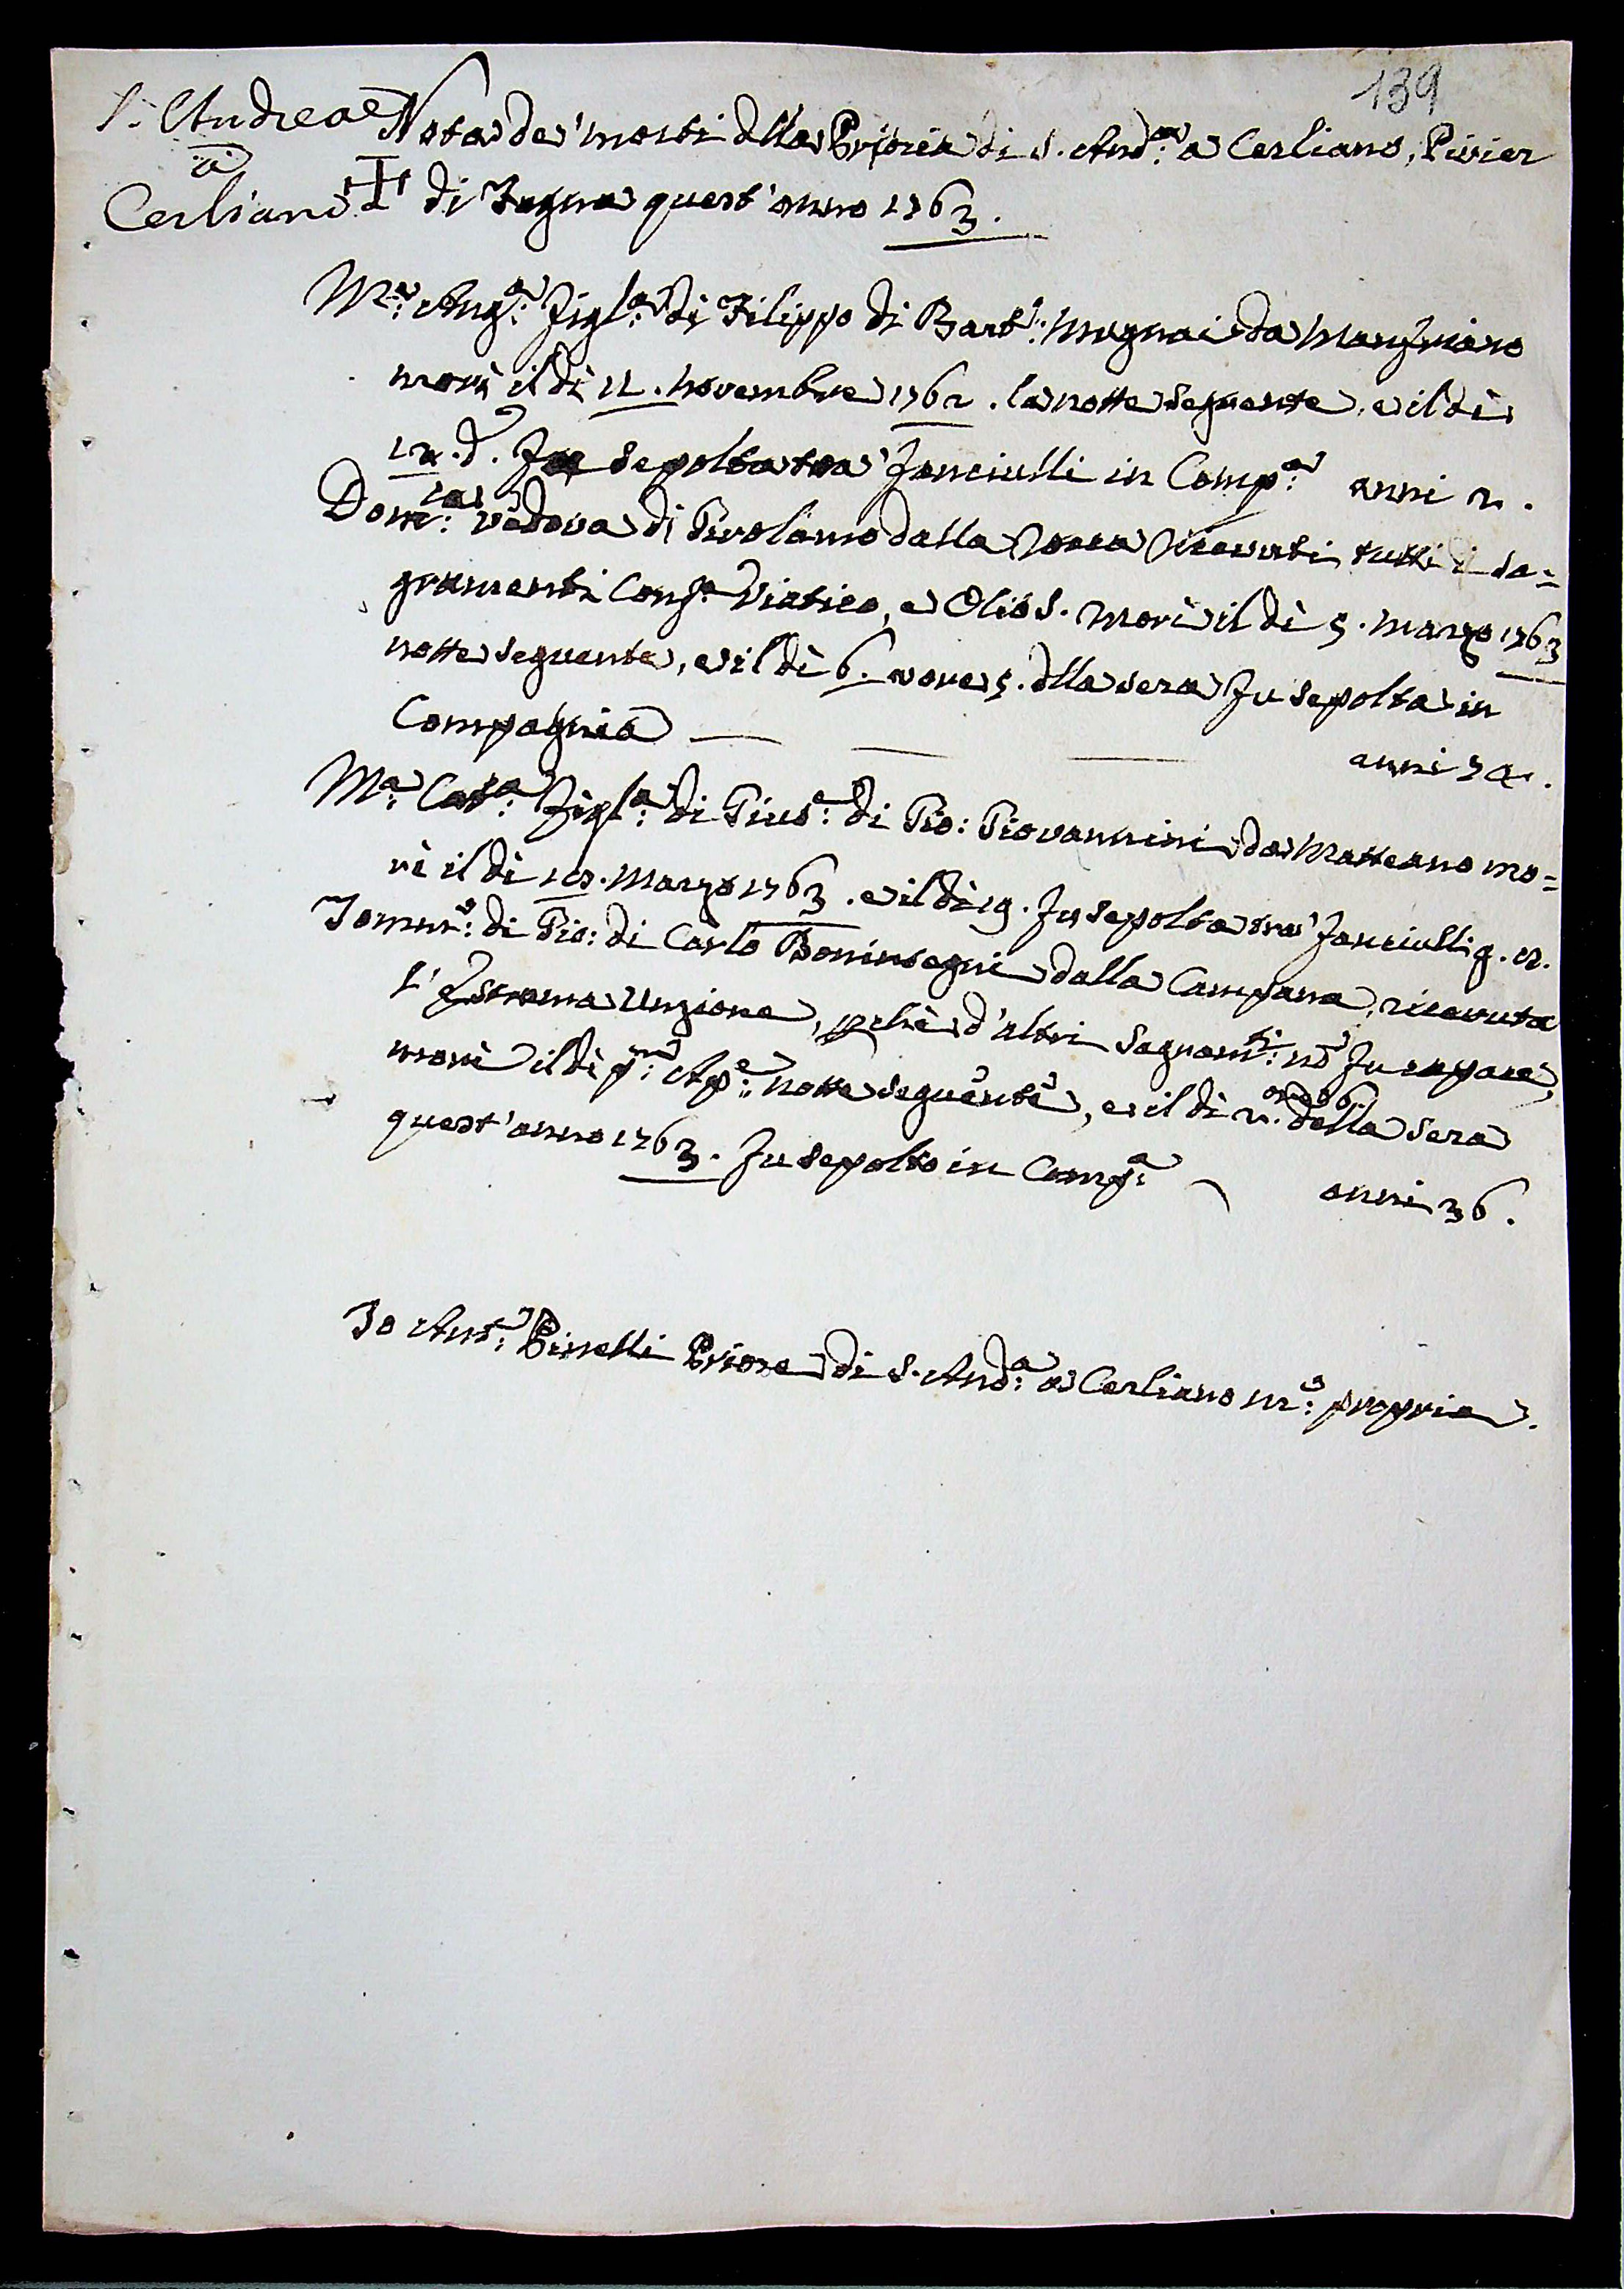 139
S. Andreae
a
Cerliano
Nota de' morti dlla Prioria di S. And.ª a Cerliano, Pivier
di Fagna quest'anno 1763.
M.ª Ang.ª Figl.ª di Filippo di Bart.º Mugnai da Manfriano
morì il dì 11. Novembre 1762. la notte seguente, e il dì
12. d.º Fu sepolta tra' Fanciulli in Comp.ª anni 2.
Dom.ca vedova di Girolamo dalla ricevuti tutti i Sa=
gramenti Conf.e Viatico, e Olio S. morì il dì 5. Marzo 1763
notte seguente, e il dì 6. a ore 5. dlla sera Fu sepolta in
Compagnia anni 74.
M.ª Cat.ª Figl.ª di Gius.e di Gio: Giovannini da Matteano mo=
rì il dì 18. Marzo 1763. e il dì 19. Fu sepolta tra' Fanciulli g. 12.
Tomm.º di Gio: di Carlo Boninsegni dalla Campana, ricevuta
l'Estrema Unzione, pchè d'altri Sagram.ti nõ Fu capace,
morì il dì p.mo Ap.e notte seguente, e il dì 2. ore 6. della sera
quest'anno 1763. Fu sepolto in Comp.ª anni 36.
Io Ant.º Pinelli Priore di S. And.ª a Cerliano m.º propria.